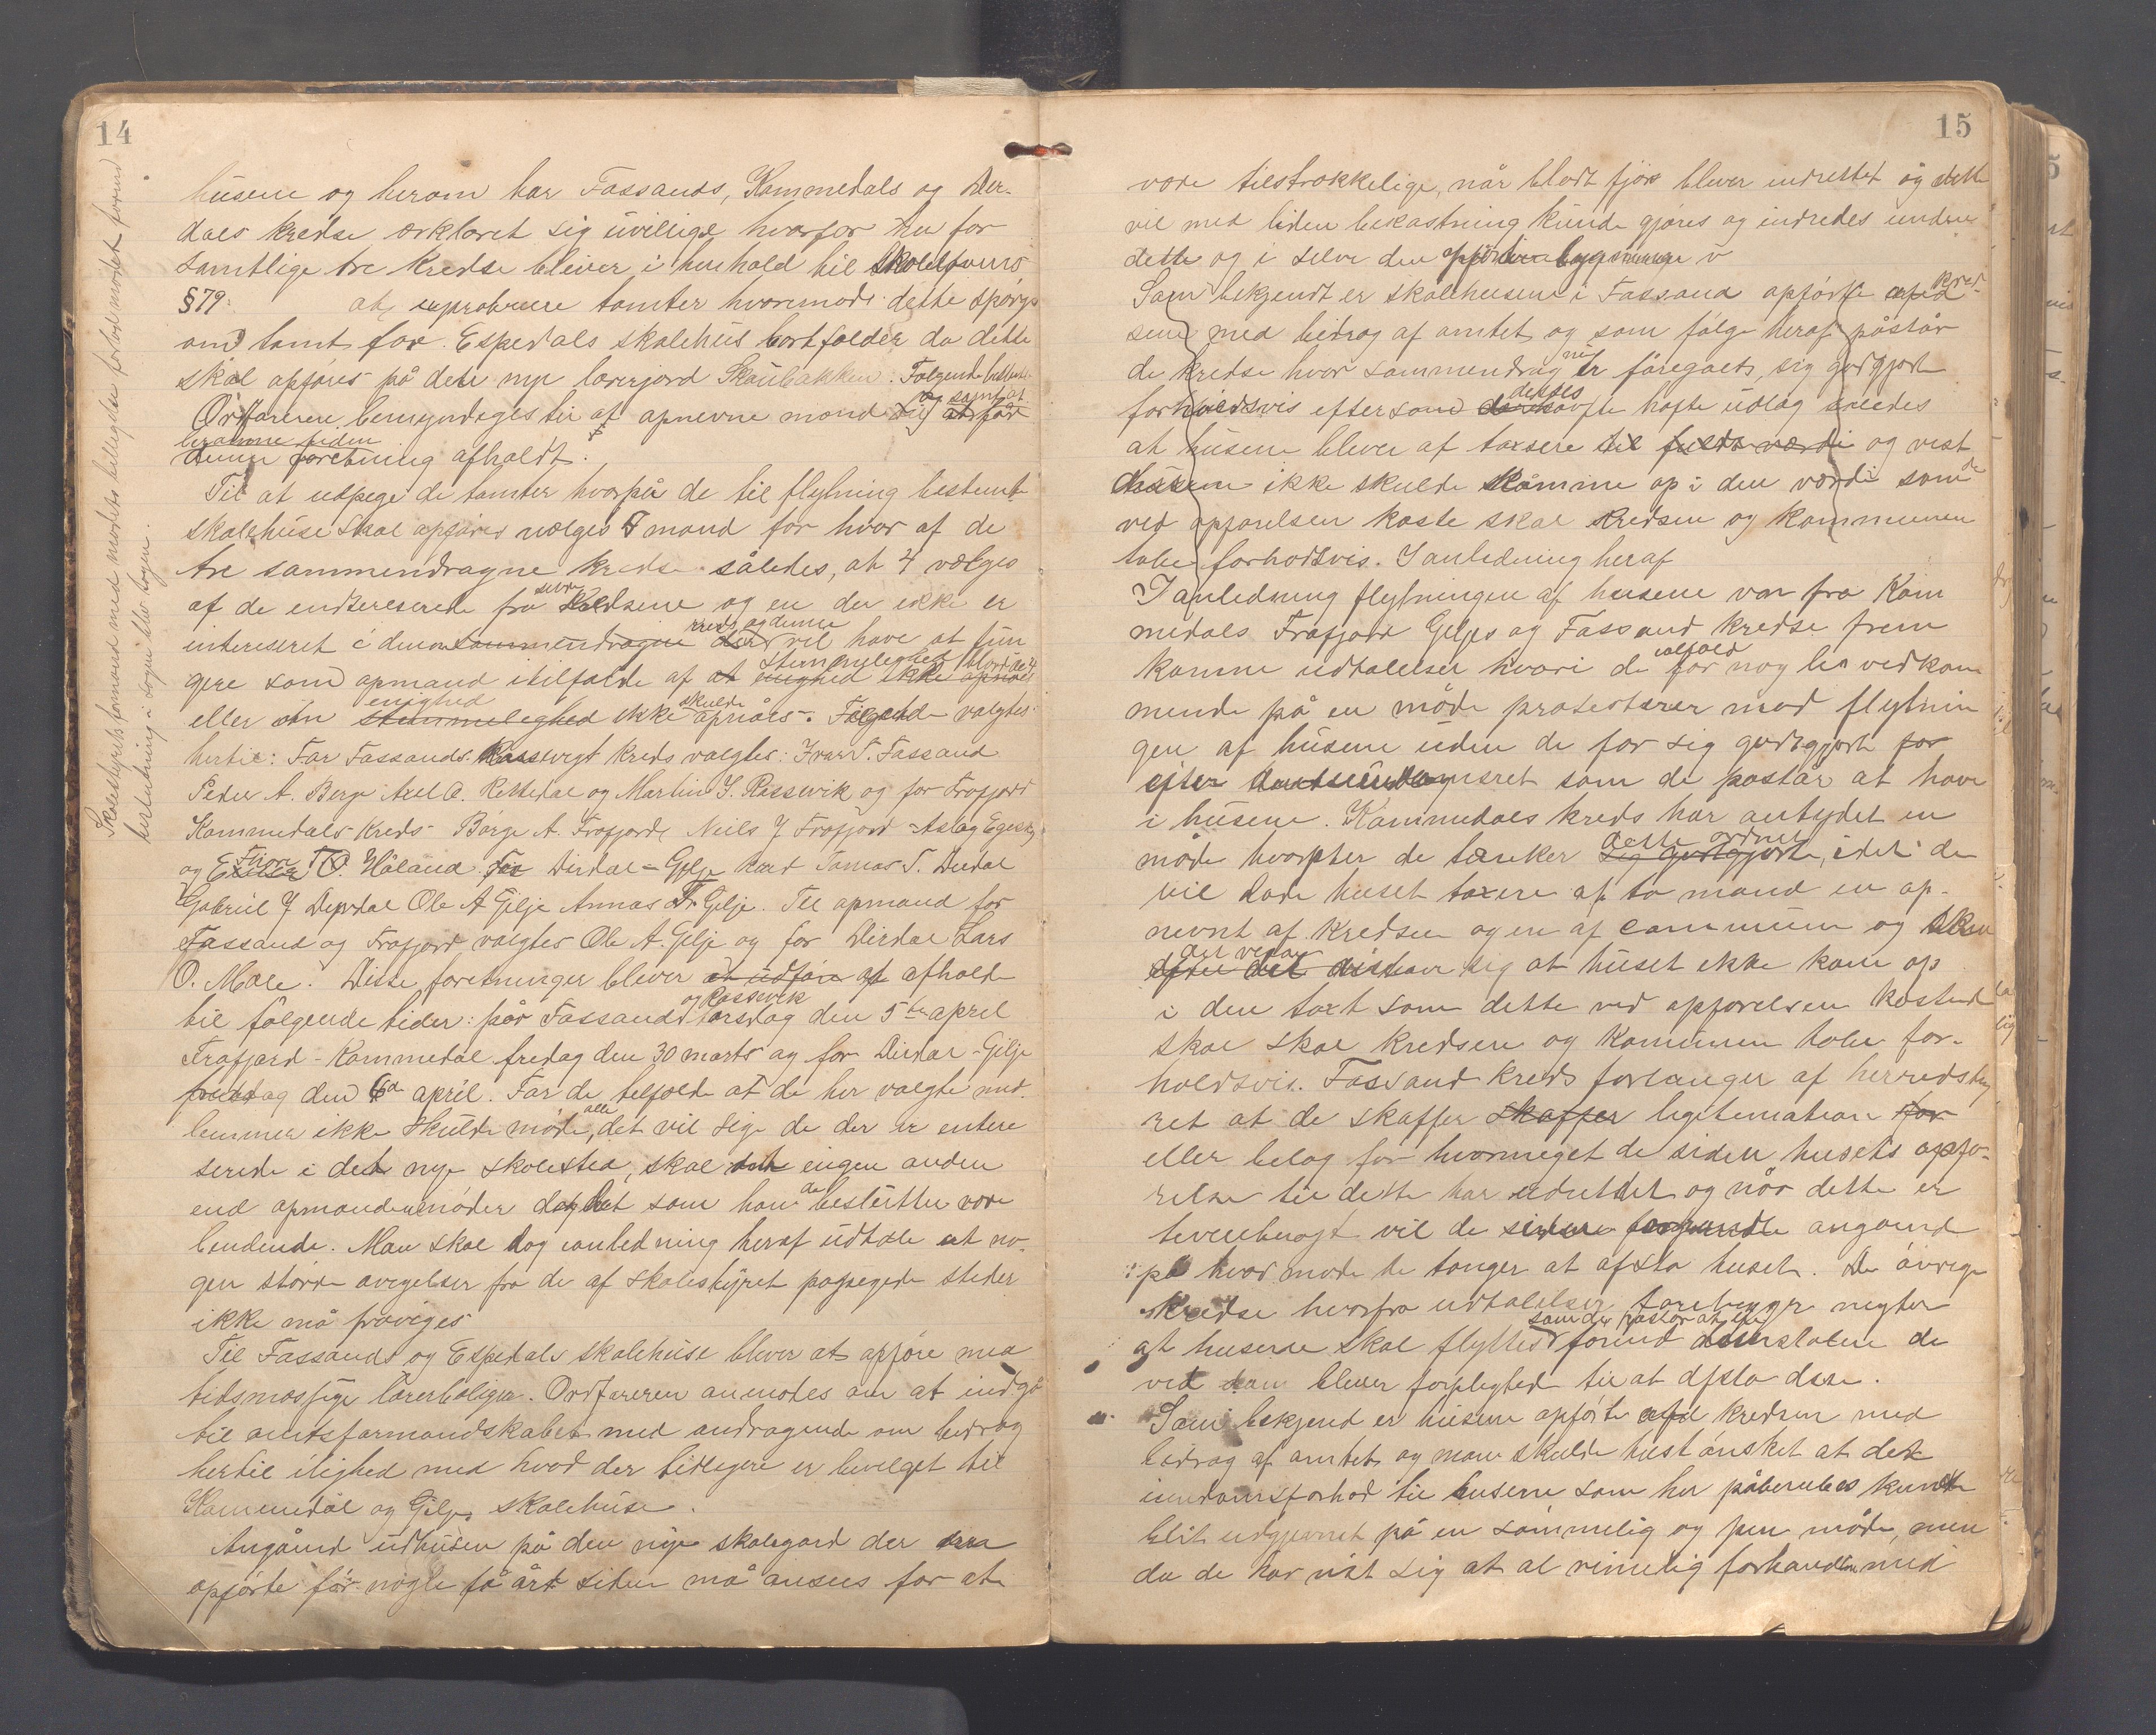 14
husene og herom har Fassands, Kommedals og Der-
dals kredse erklæret sig uvillige hvorfor der for
samtlige tre kredse bliver i henhold til skolelovens
§ 79. at exproberere tomter hvorimod dette spørgs
om tomt for Espedals skolehus bortfalder da dette
skal opføres på den nye lærerjord Skaubakken. Følgende
Ordføreren bemyndiges til at opnevne mænd og samt at får
beramme tiden
denne forretning afholdt.
Til at udpege de tomter hvorpå de til flytning bestemte
skolehuse skal opføres vælges 5 mænd for hver af de
tre sammendragne kredse således, at 4 vælges
af de endtereserede fra selve kredsene og en der ikke er
intereseret i denne sammendragne kreds og denne der vil have at fun
gere som opmand i tilfælde af at stemmelighed enighed ikke opnåes blandt de 4
eller om enighed stemmelighed ikke skulde opnåes. Følgende valgtes
hertil: For Fassands Rossevigt kreds valgtes: Ivar T. Fassand
Peder A. Berge Axel A. Rettedal og Martin S. Rossevik og for Frafjord
Kommedals kreds Børge A. Frafjord Niels J Frafjord Aslag Egeskog
og T. O. Håland For Dirdal - Gilje kred Tomas T. Dirdal
Gabriel J Dirdal Ole A Gilje Annas Fr. Gilje. Til opmand for
Fassand og Frafjord valgtes Ole A. Gilje og for Dirdal Lars
O. Mæle. Disse forretninger bliver at udføre at afholde
til følgende tider: for Fassands og Rossevik torsdag den 5te april
Frafjord - Kommedal fredag den 30 marts og for Dirdal - Gilje
fredag den 6te april. For de tilfælde at de her valgte med-
lemmer ikke skulde møde alle, det vil sige de der er entere
serede i det nye skolested, skal ingen anden
end opmanden møder da det som han da beslutter være
bendende. Man skal dog i anledning heraf udtale at no-
gen større avigelser fra de af skolestyret påpegede steder
ikke må fraviges
Til Fassands og Espedals skolehuse bliver at opføre med
tidsmæssige lærerboliger. Ordføreren anmodes om at indgå
til amtsformandskabet med andragende om bidrag
hertil i lighed med hvad der tidligere er bevilget til
Kommedal og Giljes skolehuse.
Angående udhusen på den nye skolegård der
opførte for nogle få år siden må ansees for at
Skolestyrets formand med mødets billigelse forlod mødet forind
beslutning i sagen blev tagen.
15
være tilstrækkelige, når blodt fjøs bliver indrettet og dette
vil med liden bekostning kunde gjøres og indredes under
dette og i selve den bygningen
Som bekjendt er skolehusene i Fassand opførte af kred-
sene med bidrag af amtet og som følge heraf påstår
de kredse hvor sammendrag nu er foregaet, sig godtgjort
forholdsvis eftersom deres hafte udlæg således
at husene bliver af taxsere til fulde værdi og vist
husene ikke skulde komme op i den værdi som de
ved opførelsen koste skal kredsen og kommunen
tabe forhodsvis. I anledning heraf
I anledning flytningen af husene var fra Kom
medals Frafjord Giljes og Fassand kredse frem
komne udtalelser hvori de ialfald for nogles vedkom
mende på en måde protesterer mod flytnin
gen af husene uden de får sig godtgjort for
efter eiendomsret som de påstår at have
i husene. Kommedals kreds har antydet en
måde hvorpter de tænker dette ordnet sig godtgjort, idet de
vil lade huset taxere af to mænd en op-
nevnt af kredsen og en af commune og
der vedtar sig at huset ikke kom op
i den taxt som dette ved opførelsen kostede
skal skal kredsen og kommunen tabe for-
holdsvis. Fassand kreds forlanger af herredsty
ret at de skaffer skaffer legitimation for
eller belæg for hvormeget de siden husets opfø-
relse til dette har udrettet og når dette er
tevebragt vil de angaend
på hvad måde de tænger at afsta huset. De øvrige
kredse herfra udtalelser foreligger negter
at husene skal flyttes som de påstår at eie forind domstolene de
ved dom bliver forpligtede til at afsta dem.
Som bekjend er husene opførte af kredsen med
bidrag af amtet og man skulde hust ønsket at det
eiendomsforhod til husene som her påberubes kunde
blit udgjevnet på en sømmelig og pen måde, men
da de har vist sig at al rimelig forhandling med